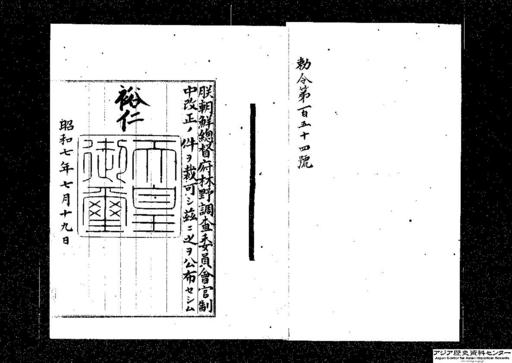 勅令第百五十四號
朕朝鮮總督府林野調査委員會官制
中改正ノ件ヲ裁可シ茲ニ之ヲ公布セシム
裕仁
天皇
御璽
昭和七年七月十九日
アジア歴史資料センター
Japan Center for Asian Historical Records